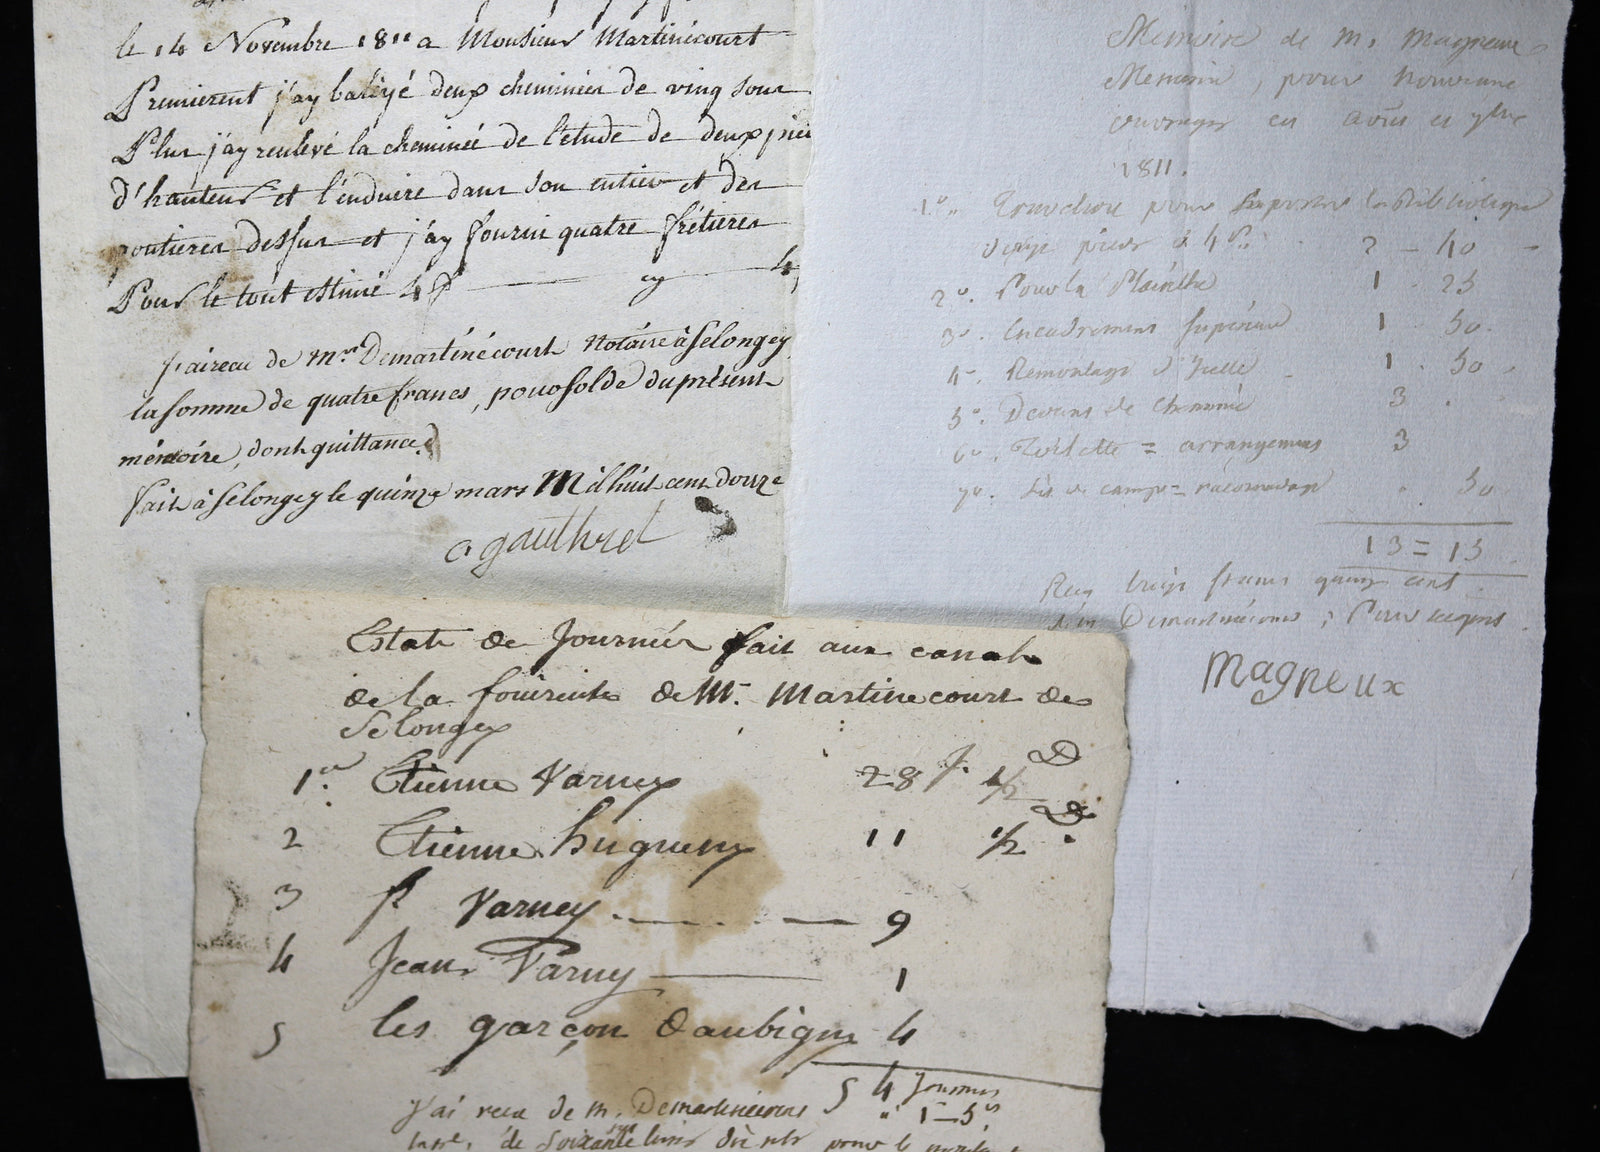 le 14 Novembre 1811 a Monsieur Martinécourt
Premierent j'ay baléyé deux cheminées de vingt sous
Plus j'ay renlevé la cheminée de l'étude de deux pié
d'hauteur et l'enduire dans son entier et des
poutieres dessus et j'ay fourni quatre frétieres
Pour le tout estimé 4 f cy 4
J'ai recu de Mr. Demartinécourt Notaire à Selongey
la somme de quatre francs, pour solde du présent
mémoire, dont quittance
fait à Selongey le quinze mars Mil huit cent douze
gauthret
Memoire de M. Magneux
Menuisier, pour
ouvrages en août et 7bre
1811.
1o. pour Supporter la Bibliotheque
pieds à 4 s. 2 - 40
2o. Pour la Plainthe 1 - 25
3o. Encadrement Supérieur 1 50
4o. Remontage d' 1 50
5o. Devant de cheminée 3
6o. Toilette = arrangement 3
7o. Lit de camp = racommodage 50
13 = 15
Reçu treize francs quinze cent.
de Mr Demartinécourt, Pour acquit
Magneux
Estat de Journés fait aux canal
de la fouirente de Mr. Martinecourt de
Selongey
1er Etienne Varney 28 J. 1/2 D
2 Etienne hugueny 11 1/2 D.
3 fr Varney 9
4 Jean Varny 1
5 les garçon Daubigny 4
54 Journées
" 1 - 5 s
J'ai recu de M. Demartinécourt
de soixante livres pour le